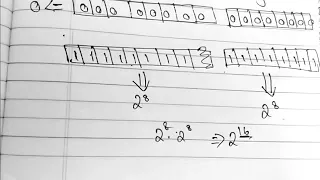 0 0 0 0 0 0 0 0 0 0 0 0 0 0 0 0
1 1 1 1 1 1 1 1 1 1 1 1 1 1 1 1
2⁸ 2⁸
2⁸ · 2⁸ ⇒ 2¹⁶